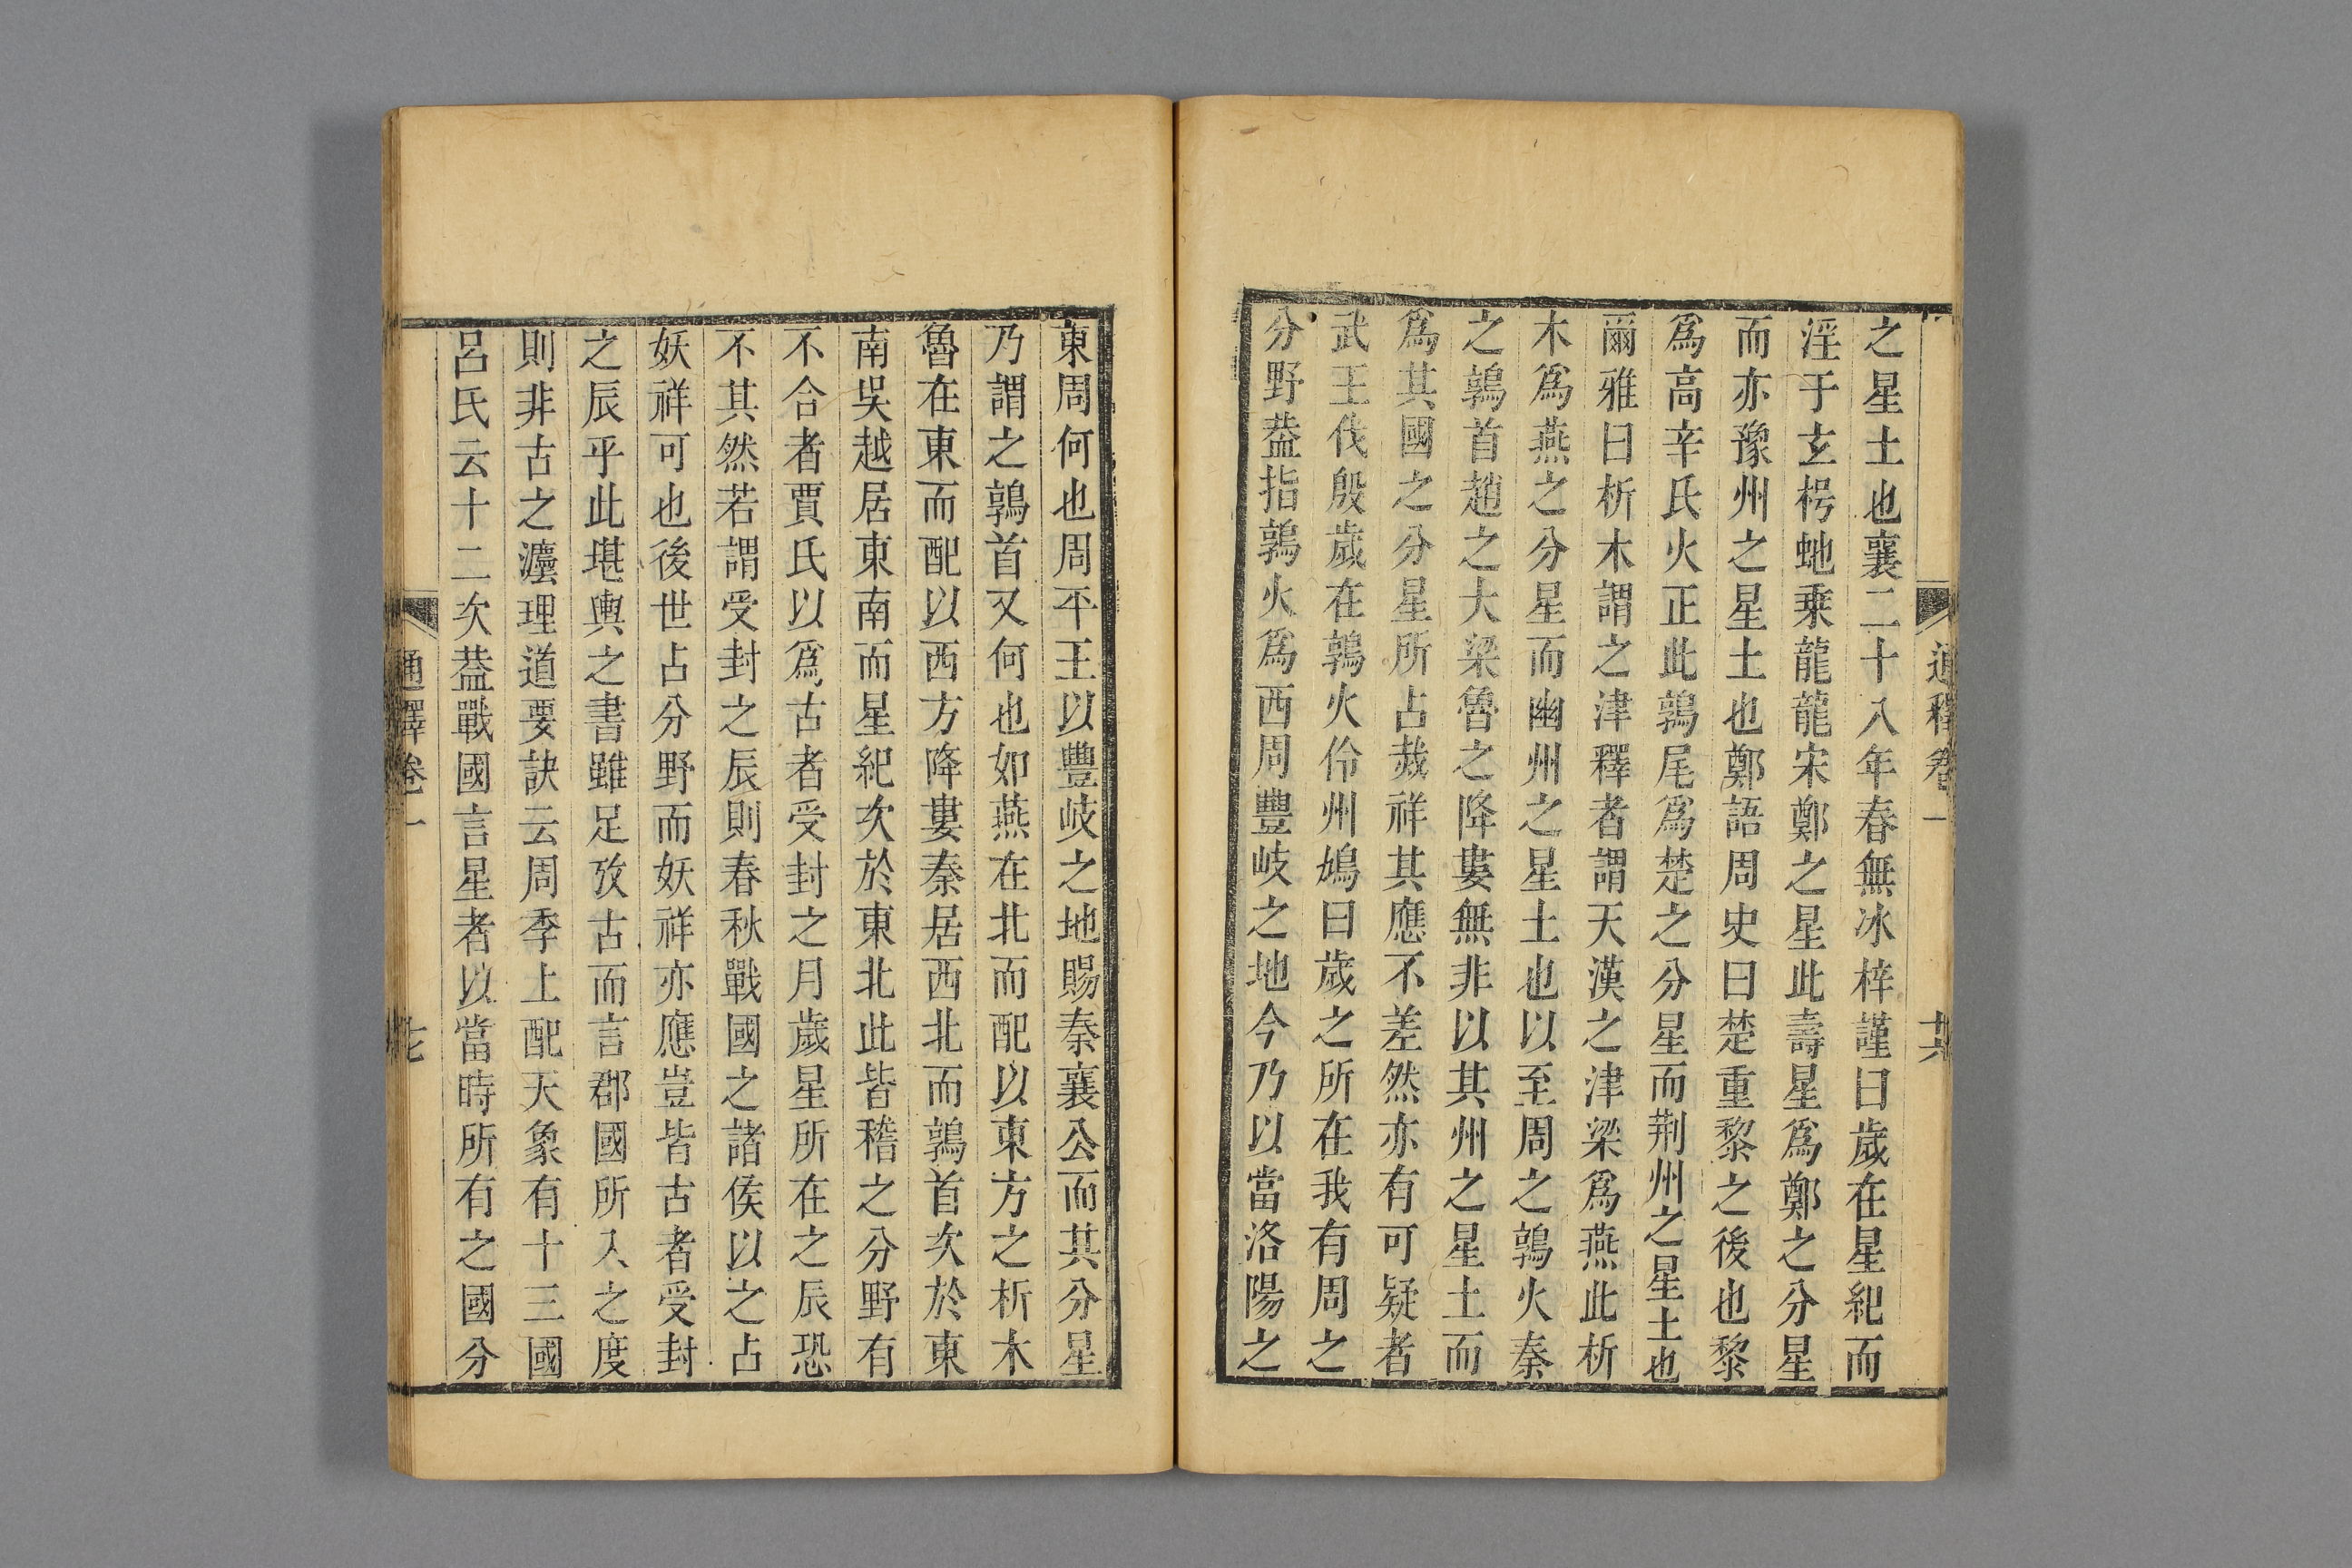 之星土也襄二十八年春無冰梓謹曰歲在星紀而
淫于玄枵虵乗龍龍宋鄭之星此壽星爲鄭之分星
而亦豫州之星土也鄭語周史曰楚重黎之後也黎
爲高辛氏火正此鶉尾爲楚之分星而荆州之星土也
爾雅曰析木謂之津釋者謂天漢之津梁爲燕此析
木爲燕之分星而幽州之星土也以至周之鶉火秦
之鶉首趙之大梁魯之降婁無非以其州之星土而
爲其國之分星所占烖祥其應不差然亦有可疑者
武王伐殷歲在鶉火伶州鳩曰歲之所在我有周之
分野葢指鶉火爲西周豐岐之地今乃以當洛陽之
通釋卷一
東周何也周平王以豐岐之地賜秦襄公而其分星
乃謂之鶉首又何也如燕在北而配以東方之析木
魯在東而配以西方降婁秦居西北而鶉首次於東
南吳越居東南而星紀次於東北此皆稽之分野有
不合者賈氏以爲古者受封之月歲星所在之辰恐
不其然若謂受封之辰則春秋戰國之諸侯以之占
妖祥可也後世占分野而妖祥亦應豈皆古者受封
之辰乎此堪輿之書雖足攷古而言郡國所入之度
則非古之灋理道要訣云周季上配天象有十三國
呂氏云十二次葢戰國言星者以當時所有之國分
通釋卷一